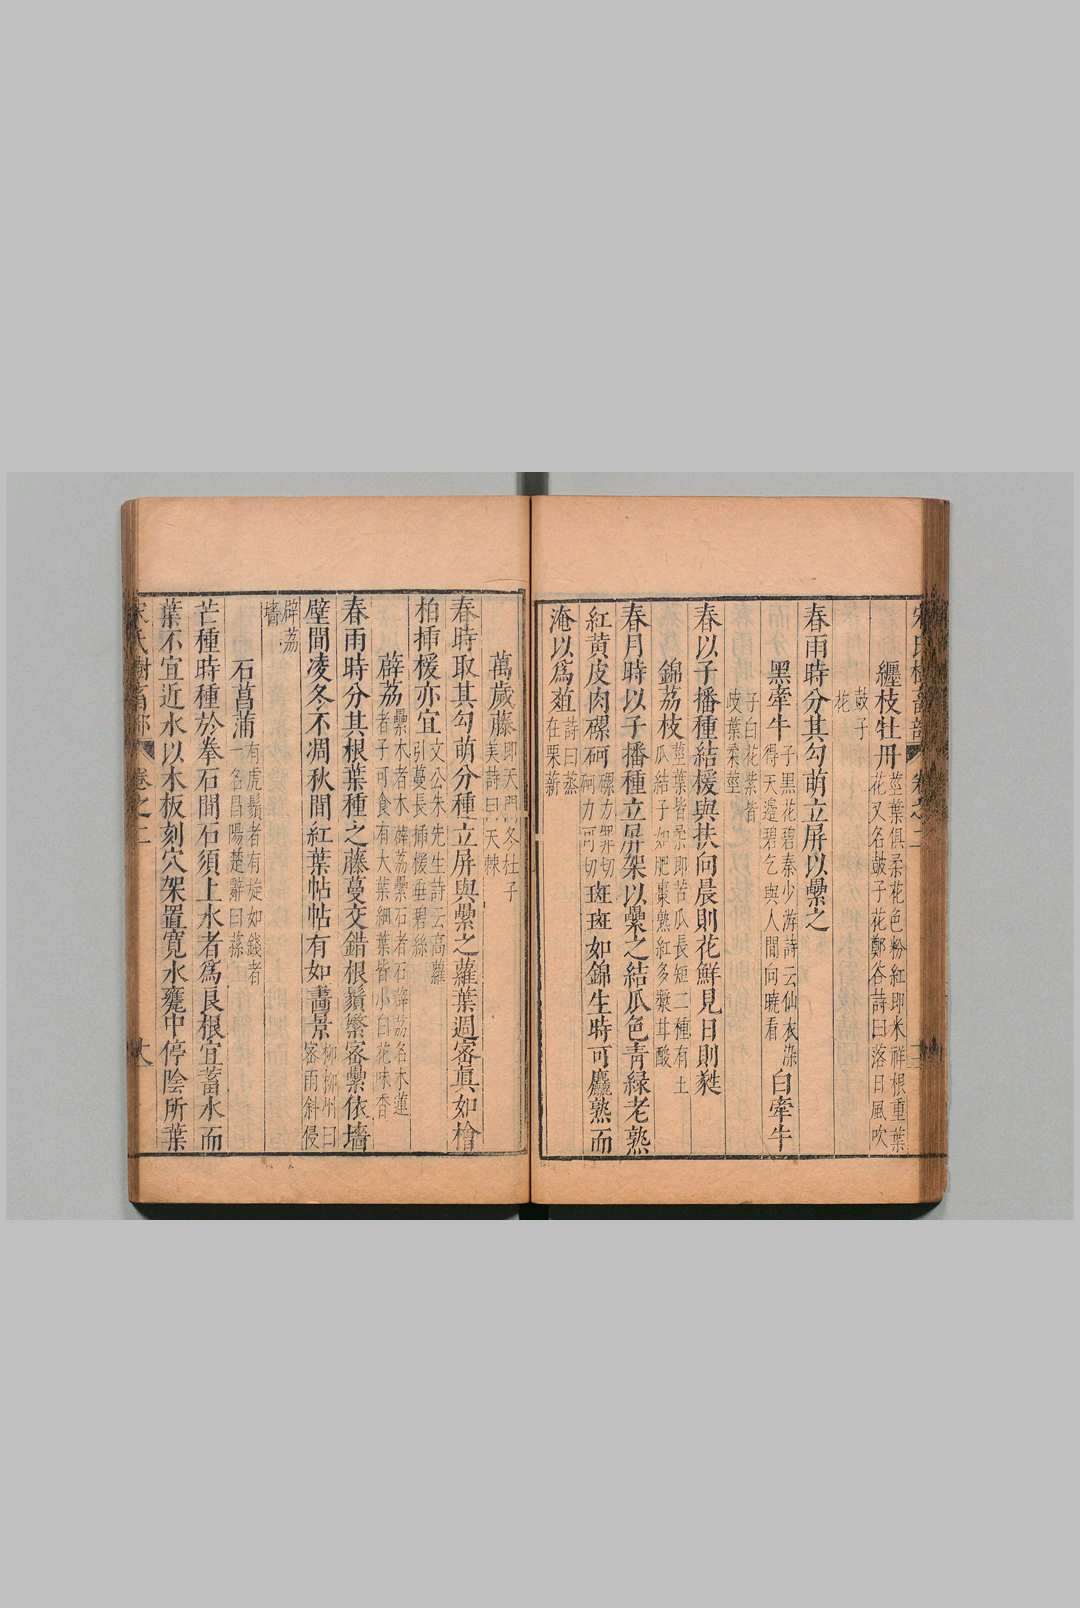 纏枝牡丹 莖葉俱柔花色粉紅即米祥根重葉
花又名鼓子花鄭谷詩曰落日風吹
鼓子
花
春雨時分其勾萌立屏以纍之
黑牽牛 子黑花碧秦少游詩云仙衣染
得天邊碧乞與人間向曉看 白牽牛
子白花紫皆
歧葉柔莖
春以子播種結楥與扶向晨則花鮮見日則蔫
錦荔枝 莖葉皆柔即苦瓜長短二種有土
瓜結子如肥棗熟紅多蘗甘酸
春月時以子播種立屏架以纍之結瓜色青綠老熟
紅黃皮肉磥砢 磥力罪切
砢力可切 斑斑如錦生時可麤熟而
淹以爲葅 詩曰蒸
在栗薪
萬歲藤 即天門冬杜子
美詩曰天棘
春時取其勾萌分種立屏與纍之蘿葉週密眞如檜
柏挿楥亦宜 文公朱先生詩云高蘿
引蔓長揷楥垂碧絲
薜荔 纍木者木薜荔纍石者石薜荔名木蓮
者子可食有大葉細葉皆小白花味香
春雨時分其根葉種之藤蔓交錯根鬚縈密纍依墻
壁間凌冬不凋秋間紅葉帖帖有如畵景 柳柳州曰
密雨斜侵
薜荔
墻
石菖蒲 有虎鬚者有旋如錢者
一名昌陽楚辭曰蓀
芒種時種於拳石間石須上水者爲良根宜蓄水而
葉不宜近水以木板刻穴架置寛水甕中停陰所葉
宋氏樹畜部 卷之二